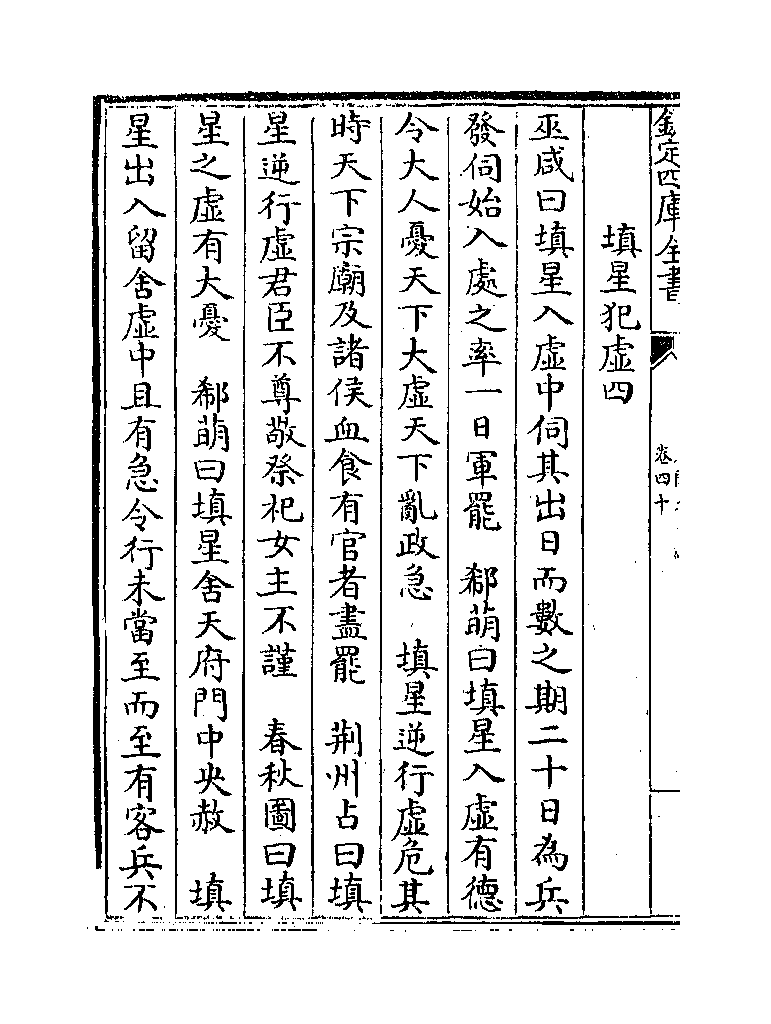 欽定四庫全書
卷四十
填星犯虛四
巫咸曰填星入虛中伺其出日而數之期二十日為兵
發伺始入處之率一日軍罷　郗萌曰填星入虛有德
令大人憂天下大虛天下亂政急　填星逆行虛危其
時天下宗廟及諸侯血食有官者盡罷　荆州占曰填
星逆行虛君臣不尊敬祭祀女主不謹　春秋圖曰填
星之虛有大憂　郗萌曰填星舍天府門中央赦　填
星出入留舍虛中且有急令行未當至而至有客兵不